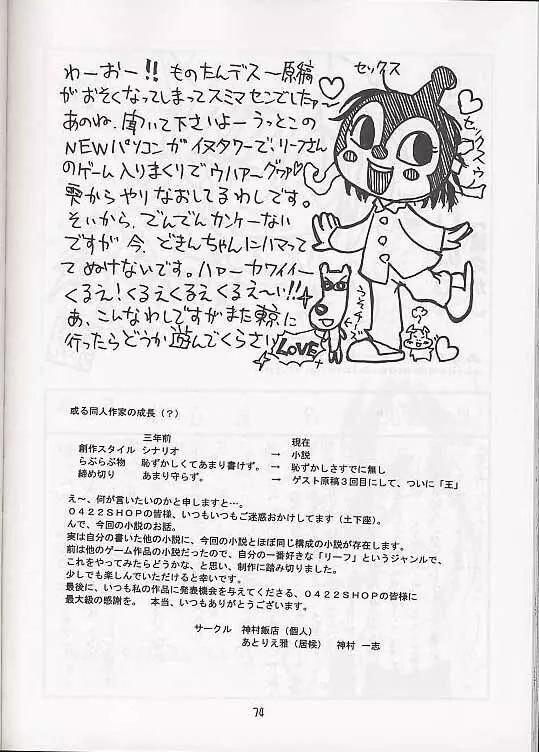 わーおー!! ものたんデス～原稿
がおそくなってしまってスミマセンでしたァ～
あのね、聞いて下さいよーうっとこの
NEWパソコンがイヌタワーで、リーフさんの
ゲーム入りまくりでウハァ～グヮァ♡
雫からやりなおしてるわしです。
そいから、でんでんカンケーない
ですが今、どきんちゃんにハマって
てぬけないです。ハァーカワイイー
くるえ!くるえくるえくるえ～い!!
あ、こんなわしですがまた東京に
行ったらどうか遊んでくらさい
セックス
セックスゥ
LOVE
或る同人作家の成長（？）
三年前 現在
創作スタイル シナリオ → 小説
らぶらぶ物 恥ずかしくてあまり書けず。 → 恥ずかしさすでに無し
締め切り あまり守らず。 → ゲスト原稿３回目にして、ついに「王」
え～、何が言いたいのかと申しますと…。
０４２２ＳＨＯＰの皆様、いつもいつもご迷惑おかけしてます（土下座）。
んで、今回の小説のお話。
実は自分の書いた他の小説に、今回の小説とほぼ同じ構成の小説が存在します。
前は他のゲーム作品の小説だったので、自分の一番好きな「リーフ」というジャンルで、
これをやってみたらどうかな、と思い、制作に踏み切りました。
少しでも楽しんでいただけると幸いです。
最後に、いつも私の作品に発表機会を与えてくださる、０４２２ＳＨＯＰの皆様に
最大級の感謝を。 本当、いつもありがとうございます。
サークル 神村飯店（個人）
あとりえ雅（居候） 神村 一志
74